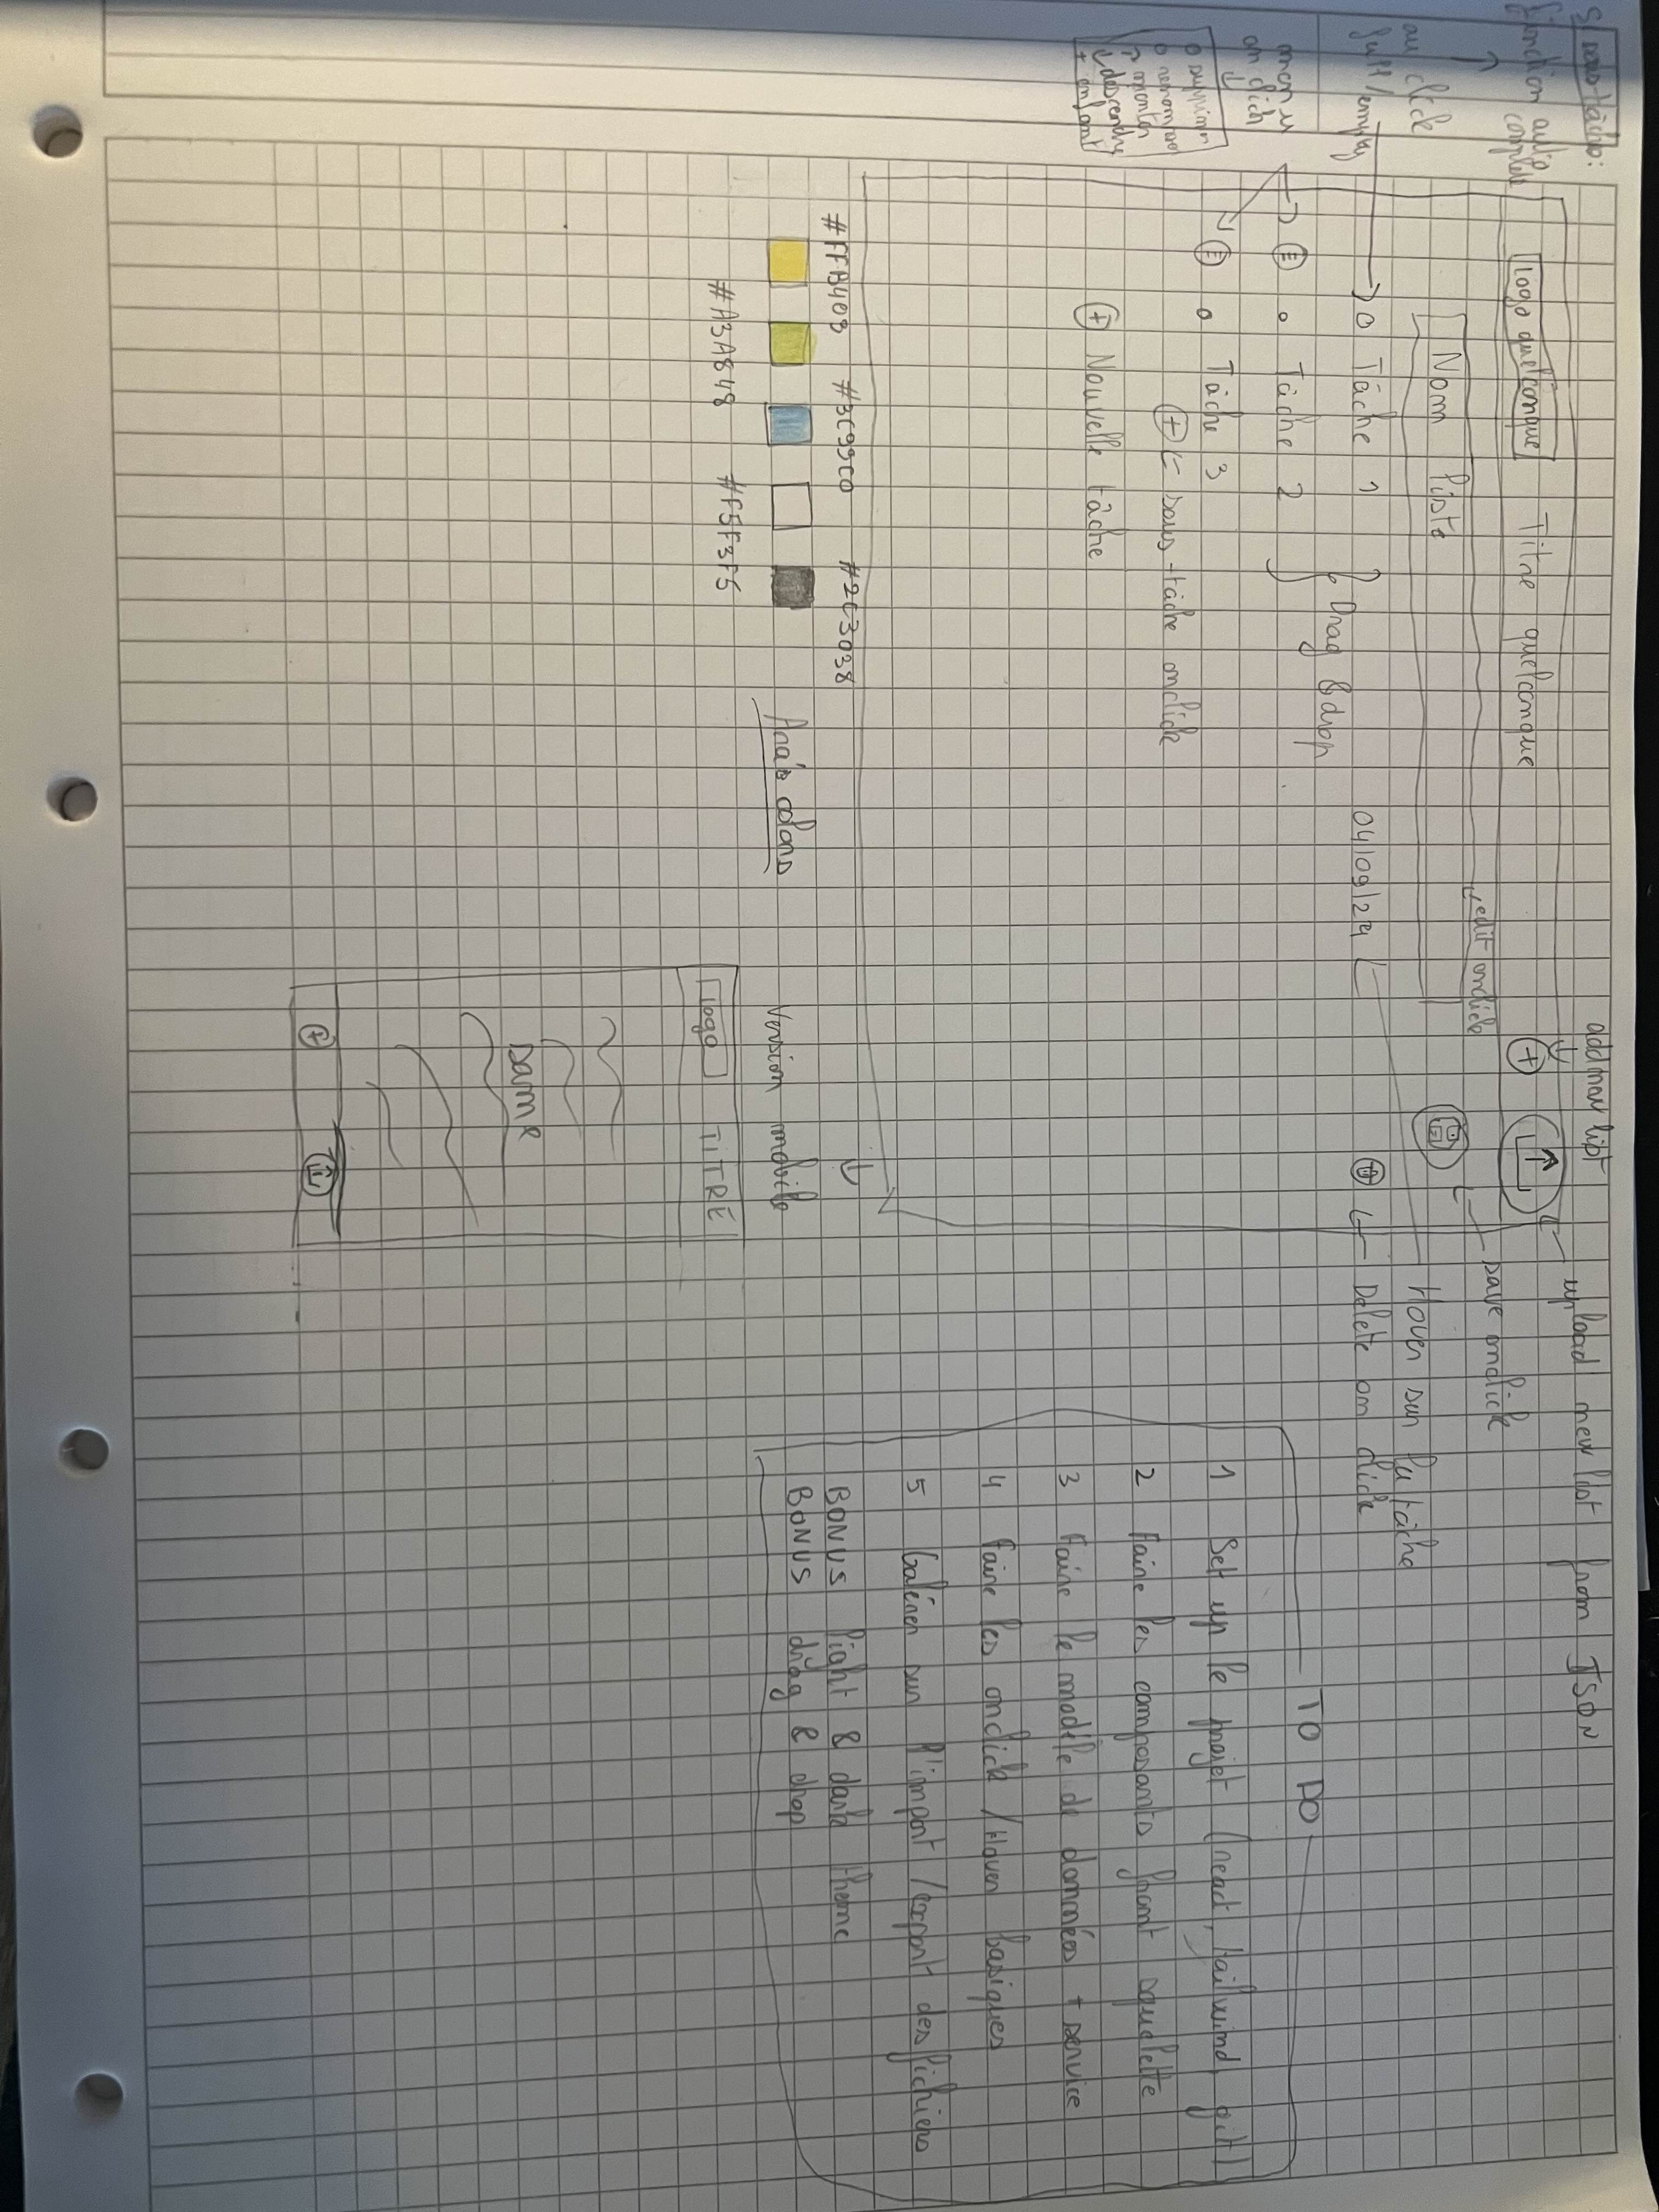 Si sous-tâche:
fonction auto
complete
au click
full/empty
menu
on click
o supprimer
o renommer
↑ monter
↓ descendre
+ enfant
add new list
upload new list from JSON
logo quelconque Titre quelconque
edit onclick
save onclick
Nom liste
Hover sur la tâche
o Tâche 1 04/09/24
Delete on click
Drag & drop
o Tâche 2
o Tâche 3
+ ← sous-tâche onclick
+ Nouvelle tâche
#FFB403 #3C99C0 #2C3038
#A3A848 #F5F3F5
Anaïs colors
Version mobile
logo TITRE
same
TO DO
1 Set up le projet (react, tailwind, git)
2 Faire les composants front squelette
3 Faire le modèle de données + service
4 Faire les onclick / Hover basiques
5 Galérer sur l'import / export des fichiers
BONUS light & dark theme
BONUS drag & drop